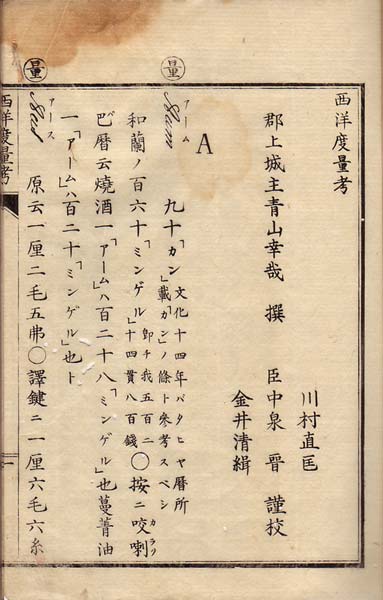 西洋度量考
川村直匡
郡上城主青山幸哉 撰 臣中泉晉 謹校
金井清緝
A
量
アーム
Aam
九十「カン」文化十四年バタヒヤ暦所
載「カン」ノ條ト參考スベシ
和蘭ノ百六十「ミンゲル」卽チ我五百二
十四貫八百錢〇按ニ咬��喇
カラ
バ
吧暦云燒酒一「アーム」ハ百二十八「ミンゲル」也蔓菁油
一「アーム」ハ百二十「ミンゲル」也ト
量
アース
Aas
原云一厘二毛五弗〇譯鍵ニ一厘六毛六糸
西洋度量考
一